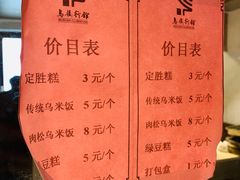 乌镇行馆
价目表
定胜糕 3 元/个
传统乌米饭 5 元/个
肉松乌米饭 8 元/个
绿豆糕 5 元/个
乌镇行馆
价目表
定胜糕 3 元/个
传统乌米饭 5 元/个
肉松乌米饭 8 元/个
绿豆糕 5 元/个
打包盒 1 元/个